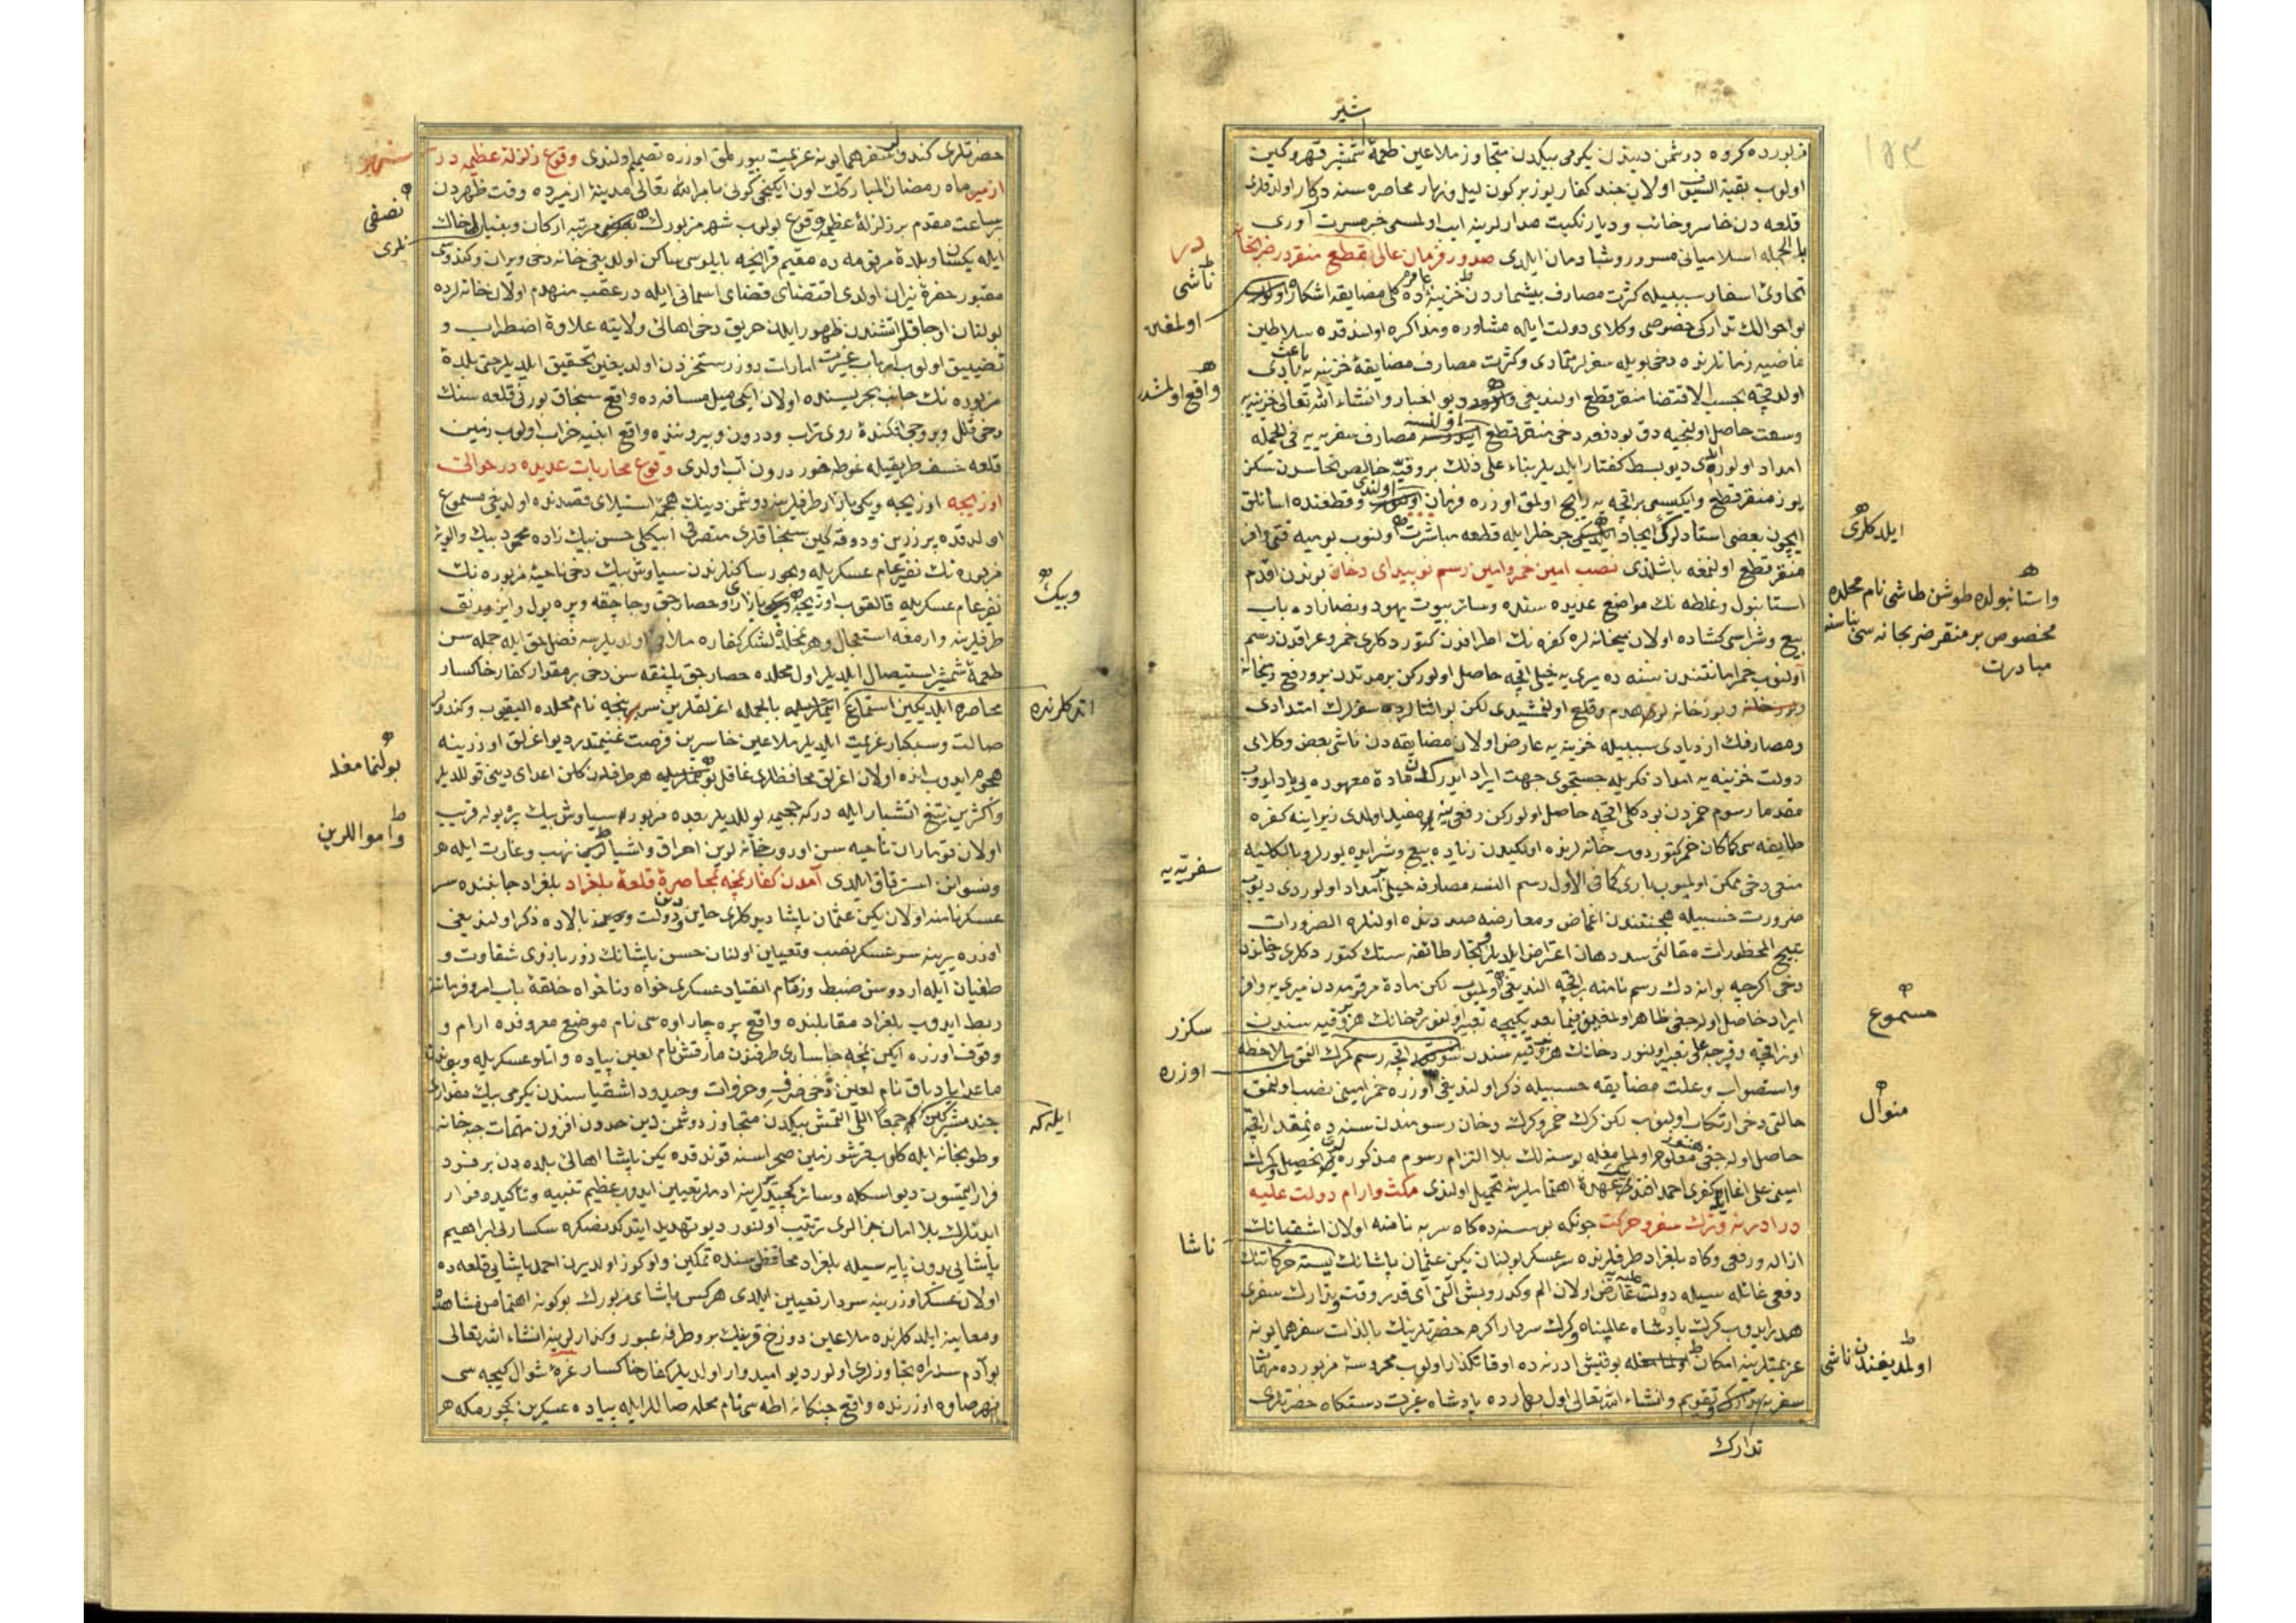 شیر
مزبورده کروه دوشمن دیندن یکرمی بیکدن متجاوز ملاعین طعمهٔ شمشیر قهر و کین
اولوب بقیة السیوف اولان چند کفار یوز بر کون لیل و نهار محاصره سنده درکار اولدقلری
قلعه دن خاسر و خائب و دیار نکبت مدارلرینه ایب اولمسی خبر مسرت آوری
بالجمله اسلامیانی مسرور و شادمان ایلدی صدور فرمان عالی بقطع منقر در ضربخانه
در
ناشی
تمادئ اسفار سببیله کثرت مصارف بیشماردن خزینهٔ عامره ده کلی مضایقه اشکار
اولمغین
بو احوالك تدارکی خصوصی وکلای دولت ایله مشاوره و مذاکره اولندقده سلاطین
ماضیه زمانلرنده دخی بویله سفرلر تمادی و کثرت مصارف مضایقهٔ خزینه یه باعث
واقع اولمشدر
اولدقچه بحسب الاقتضا منقر قطع اولندیغی دیو اخبار و انشاء الله تعالی خزینه یه
وسعت حاصل اولنجیه دق بو دفعه دخی منقر قطع اولنسه مصارف سفریه یه فی الجمله
امداد اولوردی دیو بسط کفتار ایلدیلر بناء علی ذلك بر وقیه خالص نحاسدن سکز
یوز منقر قطع و ایکیسی بر اقچه یه رایج اولمق اوزره فرمان اولندی و قطعنده اسانلق
ایچون بعضی استادلرك ایجاد ایلدکلری چرخلر ایله قطعه مباشرت اولنوب یومیه قتی وافر
ایلدکلری
منقر قطع اولنمغه باشلندی نصب امین خمر و امین رسم نوپیدای دخان بوندن اقدم
واستانبولده طوشن طاشی نام محلده
مخصوص بر منقر ضربخانه سی بناسنه
مبادرت
استانبول و غلطه نك مواضع عدیده سنده و سائر بیوت یهود و نصاراده باب
بیع و شراسی کشاده اولان میخانه لره کفره نك اطرافدن کتوردکلری خمر و عراقدن رسم
آلنوب خمر امانتندن سنه ده میری یه خیلی اقچه حاصل اولورکن بر مدتدن برو رفع و میخانه
و بوزخانه لری هدم و قلع اولنمشیدی لکن بو اثنالرده سفرلرك امتدادی
و مصارفك ازدیادی سببیله خزینه یه عارض اولان مضایقه دن ناشی بعض وکلای
دولت خزینه یه امداد فکریله جستجوی جهت ایراد ایدرکن مادهٔ معهوده یی یاد ایدوب
مقدما رسوم خمردن بو دکلی اقچه حاصل اولورکن رفعی نه مفید اولدی زیرا ینه کفره
طایفه سی کماکان خمر کتوردوب خانه لرنده اولکیدن زیاده بیع و شرا ایده یورلر و بالکلیه
سفریه یه
منعی دخی ممکن اولمیوب باری کما فی الاول رسم النسه مصارفه خیلی امداد اولوردی دیوب
ضرورت حسبیله هجنتندن اغماض و معارضه صددنده اولنلره الضرورات
تبیح المحظورات مقالتی سد دهان اعتراض ایلدیلر و تجار طائفه سنك کتوردکلری دخاندن
دخی اکرچه بو انه دك رسم نامنه بر اقچه الندیغی مسموع اولمیوب لکن مادهٔ مرقومه دن میری یه وافر
مسموع
ایراد حاصل اوله جغی ظاهر اولمغین فیما بعد یکیجه تعبیر اولنور دخانك هر وقیه سندن
سکزر
اوزره
اونر اقچه و قرجه علی تعبیر اولنور دخانك هر وقیه سندن اقچه رسم کمرك النمق ملاحظه
و استصواب و علت مضایقه حسبیله ذکر اولندیغی اوزره خمر امینی نصب اولنمق
منوال
حالتی دخی ارتکاب اولنوب لکن کمرك خمر و کمرك دخان رسومندن سنه ده نه مقدار اقچه
حاصل اوله جغی معلوم اولنمامغله بو سنه لك بلا التزام رسوم مذکوره یی تحصیل کمرك
امینی علی اغا احمد افندی عهدهٔ اهتماملرینه تحمیل اولندی مکث و ارام دولت علیه
در ادرنه و ترك سفر و حرکت چونکه بر سنده کاه سربه نامنه اولان اشقیانك
ناشا
ازاله و رفعی و کاه بلغراد طرفلرنده سرعسکر بولنان یکن عثمان پاشانك ناشایسته حرکاتنك
دفعی غائله سیله دولت علیه یه عارض اولان الم و کدر و بش التی آی قدر وقت تدارك سفری
هدر ایدوب کرك پادشاه عالمپناه و کرك سردار اکرم حضرتلرینك بالذات سفر همایونه
عزیمتلرینه امکان اولمدیغندن ناشی بو قیش ادرنه ده اوقاتکذار اولوب محروسهٔ مزبورده مهمات
اولمدیغندن ناشی
سفریه تدارك و تقویم و انشاء الله تعالی اول بهارده پادشاه غیرت دستکاه حضرتلری
تدارك
حضرتلری کندولر سفر همایونه عزیمت بیورلمق اوزره تصمیم اولندی وقوع زلزلهٔ عظیمه در
شهر
ازمیر ماه رمضان المبارکك اون ایکنجی کونی بامر الله تعالی مدینهٔ ازمیرده وقت ظهردن
نصفی
بر ساعت مقدم بر زلزلهٔ عظیمه وقوع بولوب شهر مزبورك نصفی مرتبه ارکان و بنیانلری خاك
نلری
ایله یکسان و بلدهٔ مرقومه ده مقیم فرانچه بایلوسی ساکن اولدیغی خانه دخی ویران و کندوسی
مقبور حفرهٔ نیران اولدی اقتضای قضای اسمانی ایله در عقب منهدم اولان خانه لرده
بولنان اوجاقلر اتشندن ظهور ایلین حریق دخی اهالئ ولایته علاوهٔ اضطراب و
تضییق اولوب ارباب عبرت امارات روز رستخیزدن اولدیغین تحقیق ایلدیلر حتی بلدهٔ
مزبوره نك جانب بحریسنده اولان ایکی میل مسافه ده واقع سنجاق بورنی قلعه سنك
دخی قلل و بروجی افکندهٔ روی تراب و درون و بیرونده واقع ابنیه خراب اولوب زمین
قلعه خسف طریقیله غوطه خور درون آب اولدی وقوع محاربات عدیده در حوالئ
اوزیجه اوزیجه و یکی بازار طرفلرینه دوشمن دینك هجمهٔ استیلای قصدنده اولدیغی مسموع
اولدقده پرزرین و دوقه کین سنجاقلری متصرفی ایپکلی حسن بیك زاده محمود بیك و الویهٔ
مزبوره نك نفیر عام عسکریله و بحور ساکنلرندن سیاوش بیك دخی ناحیهٔ مزبوره نك
وبیك
نفیر عام عسکریله قالقوب اوزیجه و یکی بازاری و حصارجق و چاچقه و پره پول و این وردنق
طرفلرینه وارمغه استعجال و هر محلده لشکر کفاره ملاقی اولدیلرسه فضل حق ایله جمله سن
طعمهٔ شمشیر استیصال ایلدیلر اول محلده حصارجق پلنقه سن دخی بر مقدار کفار خاکسار
اتدکلرنده
محاصره ایلدیکین استماع اتدکلرنده بالجمله اغرلقلرین سربنیچه نام محلده الیقیوب و کندولر
صالت و سبکبار عزیمت ایلدیلر ملاعین خاسرین فرصت غنیمتدر دیو اغرلق اوزرینه
بولنمامغله
هجوم ایدوب انده اولان اغرلق محافظلری غافل بولنمامغله هر طرفدن کلن اعدای دینی قوللدیلر
و اکثرین تیغ اتشبار ایله درکه جحیمه یوللدیلر بعده مزبور سیاوش بیك پره پوله قریب
واموالرین
اولان قوماران ناحیه سن اوروب خانه لرین احراق و اشیالرین نهب و غارت ایله هر
و نسوانن استرقاق ایلدی آمدن کفار نمچه بمحاصرهٔ قلعهٔ بلغراد بلغراد جانبنده سر
عسکر نامنه اولان یکن عثمان پاشا دیدکلری خاین دین و دولت بالاده ذکر اولندیغی
اوزره یرینه سرعسکر نصب و تعیین اولنان حسن پاشانك زور بازوی شقاوت و
طغیان ایله اردوسن ضبط و زمام انقیاد عسکری خواه و ناخواه حلقهٔ باب امر و فرماننه
ربط ایدوب بلغراد مقابلنده واقع پره چار اوه سی نام موضع معروفده ارام و
وقوف اوزره ایکن نمچه چاساری طرفندن مارقش نام لعین پیاده و اتلو عسکریله و بوندن
ماعدا پادیاق نام لعین دخی خرف و خروات و حیدود اشقیاسندن یکرمی بیك مقداری
ایله که
چند مشرکین که جمعا اللی التمش بیکدن متجاوز دوشمن دین حددن افزون مهمات جبه خانه
و طوپخانه ایله کلوب قرشو زمین صحراسنه قوندقده یکن پاشا اهالئ بلده دن بر فرد
فرار ایتمسون دیو اسکله و سائر کچیدلرینه ادملر تعیین ایدوب عظیم تنبیه و تأکیده فرار
ایدنلرك بلا امان جزالری ترتیب اولنور دیو تهدید ایتدکدنصکره سکسارلی ابراهیم
پاشایی بدون پایه سیله بلغراد محافظه سنده تمکین و اوکوز اولدیرن احمد پاشایی قلعه ده
اولان عسکر اوزرینه سردار تعیین ایلدی هرکس پاشای مزبورك بو کونه اهتمامن مشاهده
و معاینه ایلدکلرنده ملاعین دوزخ قرینك برو طرفه عبور و کذارلرینه انشاء الله تعالی
بو آدم سد راه تجاوزلری اولور دیو امیدوار اولدیلر کفار خاکسار غرهٔ شوال کیجه سی
نهر صاوه اوزرنده واقع چنکانه اطه سی نام محله صاللر ایله پیاده عسکرین کچورمکه هر